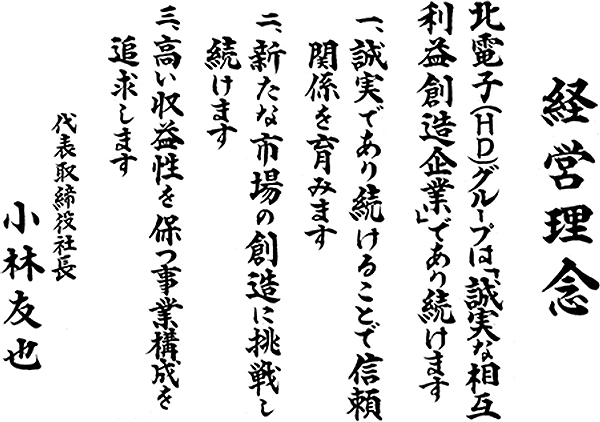 経営理念
北電子(HD)グループは、「誠実な相互
利益創造企業」であり続けます
一、誠実であり続けることで信頼
関係を育みます
二、新たな市場の創造に挑戦し
続けます
三、高い収益性を保つ事業構成を
追求します
代表取締役社長
小林友也